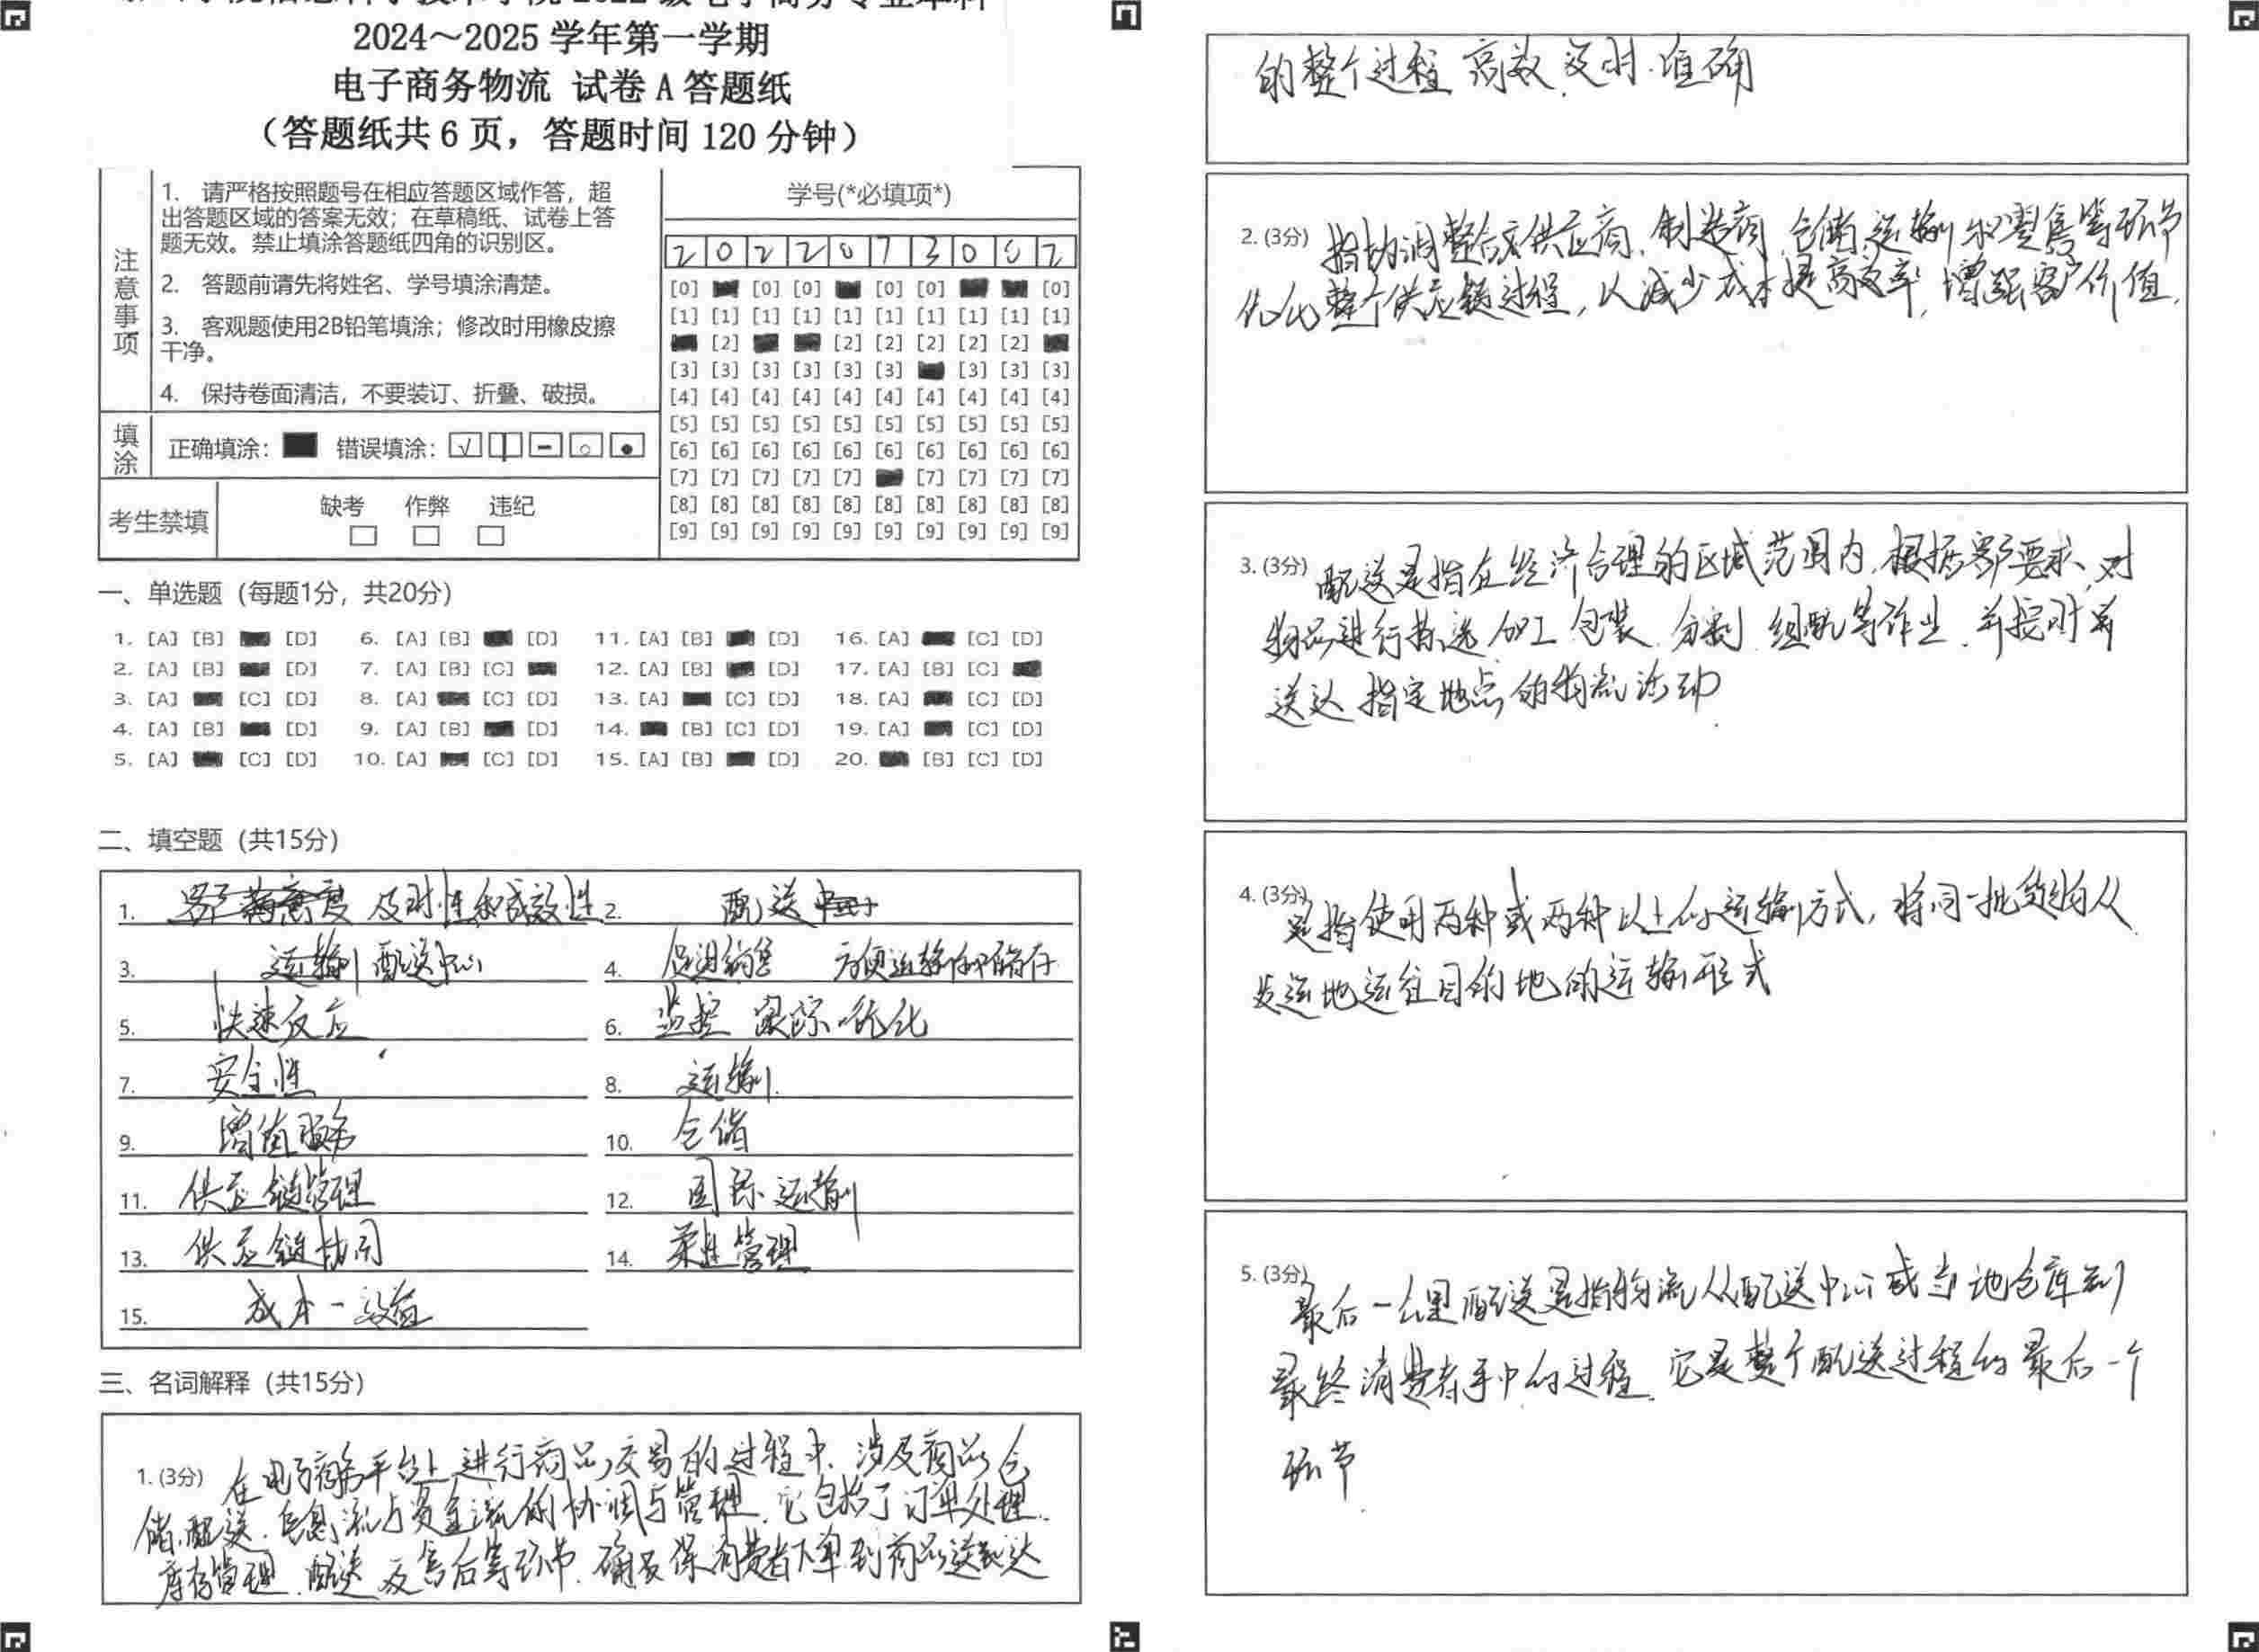 2024～2025 学年第一学期
电子商务物流 试卷 A 答题纸
（答题纸共 6 页，答题时间 120 分钟）
注意事项
1. 请严格按照题号在相应答题区域作答，超
出答题区域的答案无效；在草稿纸、试卷上答
题无效。禁止填涂答题纸四角的识别区。
2. 答题前请先将姓名、学号填涂清楚。
3. 客观题使用2B铅笔填涂；修改时用橡皮擦
干净。
4. 保持卷面清洁，不要装订、折叠、破损。
填涂
正确填涂： 错误填涂：
考生禁填
缺考 作弊 违纪
学号(*必填项*)
2 0 2 2 0 7 3 0 0 2
[0] [0] [0] [0] [0] [0]
[1] [1] [1] [1] [1] [1] [1] [1] [1] [1]
[2] [2] [2] [2] [2] [2]
[3] [3] [3] [3] [3] [3] [3] [3] [3]
[4] [4] [4] [4] [4] [4] [4] [4] [4] [4]
[5] [5] [5] [5] [5] [5] [5] [5] [5] [5]
[6] [6] [6] [6] [6] [6] [6] [6] [6] [6]
[7] [7] [7] [7] [7] [7] [7] [7] [7]
[8] [8] [8] [8] [8] [8] [8] [8] [8] [8]
[9] [9] [9] [9] [9] [9] [9] [9] [9] [9]
一、单选题（每题1分，共20分）
1. [A] [B] [D] 6. [A] [B] [D] 11. [A] [B] [D] 16. [A] [C] [D]
2. [A] [B] [D] 7. [A] [B] [C] 12. [A] [B] [D] 17. [A] [B] [C]
3. [A] [C] [D] 8. [A] [C] [D] 13. [A] [C] [D] 18. [A] [C] [D]
4. [A] [B] [D] 9. [A] [B] [D] 14. [B] [C] [D] 19. [A] [C] [D]
5. [A] [C] [D] 10. [A] [C] [D] 15. [A] [B] [D] 20. [B] [C] [D]
二、填空题（共15分）
1. 及时性和成效性 2. 配送
3. 运输 配送中心 4. 促进销售 方便运输和储存
5. 快速反应 6. 监控 跟踪 优化
7. 安全性 8. 运输
9. 增值服务 10. 仓储
11. 供应链管理 12. 国际运输
13. 供应链协同 14. 柔性管理
15. 成本-效益
三、名词解释（共15分）
1. (3分) 在电子商务平台上进行商品交易的过程中，涉及商品仓
储、配送、信息流与资金流的协调与管理，它包括了订单处理、
库存管理、配送及售后等环节，确保消费者下单到商品送到达
的整个过程 高效、及时、准确
2. (3分) 指协调整合供应商、制造商、仓储、运输和零售等环节
优化整个供应链过程，以减少成本提高效率，增强客户价值.
3. (3分) 配送是指在经济合理的区域范围内，根据客户要求，对
物品进行拣选、加工、包装、分割、组配等作业，并按时并
送达指定地点的物流活动
4. (3分) 是指使用两种或两种以上的运输方式，将同一批货物从
发运地运往目的地的运输形式
5. (3分) 最后一公里配送是指物流从配送中心或当地仓库到
最终消费者手中的过程，它是整个配送过程的最后一个
环节